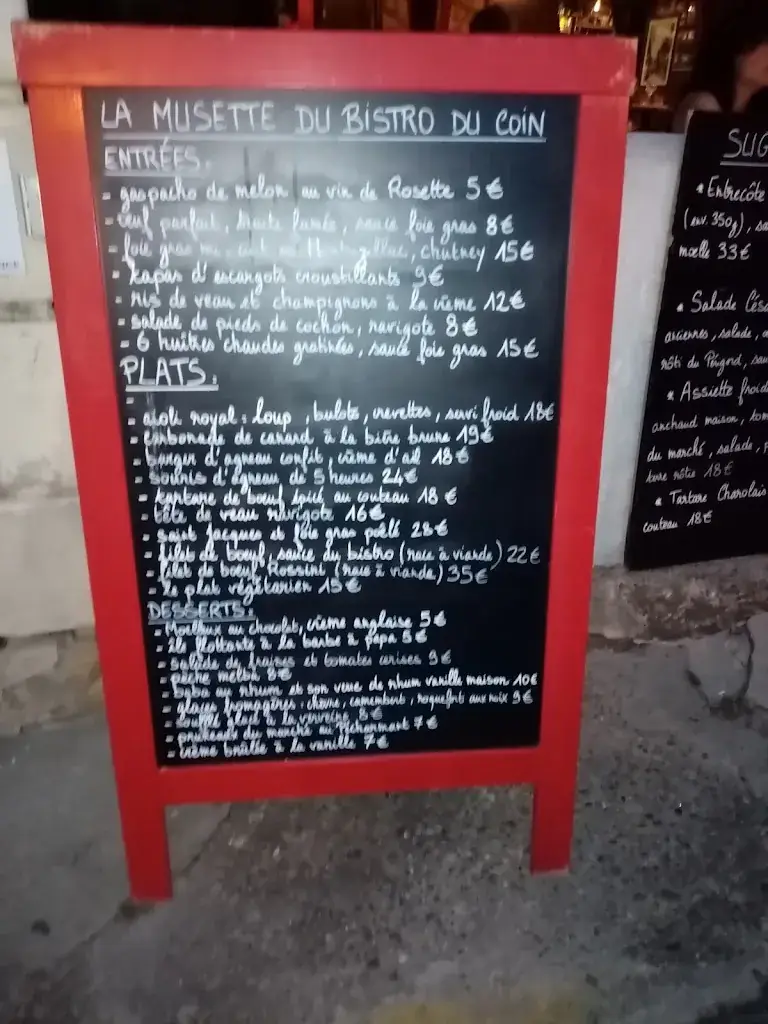 LA MUSETTE DU BISTRO DU COIN
ENTRÉES.
- gaspacho de melon au vin de Rosette 5€
- œuf parfait, truite fumée, sauce foie gras 8€
- foie gras mi-cuit , chutney 15€
- tapas d'escargots croustillants 9€
- ris de veau et champignons à la crème 12€
- salade de pieds de cochon, ravigote 8€
- 6 huîtres chaudes gratinées, sauce foie gras 15€
PLATS.
-
- aïoli royal : loup, bulots, crevettes, servi froid 18€
- carbonade de canard à la bière brune 19€
- burger d'agneau confit, crème d'ail 18€
- souris d'agneau de 5 heures 24€
- tartare de bœuf épicé au couteau 18€
- tête de veau ravigote 16€
- saint Jacques et foie gras poêlé 28€
- filet de bœuf, sauce du bistro (race à viande) 22€
- filet de bœuf Rossini (race à viande) 35€
- le plat végétarien 15€
DESSERTS.
- Moelleux au chocolat, crème anglaise 5€
- île flottante à la barbe à papa 6€
- salade de fraises et tomates cerises 9€
- pêche melba 8€
- baba au rhum et son verre de rhum vanille maison 10€
- glaces fromagères : chèvre, camembert, roquefort aux noix 9€
- soufflé glacé à la verveine 8€
- pruneaux du marché au Pécharmant 7€
- crème brûlée à la vanille 7€
SUG
* Entrecôte
(env. 350g), sa
moelle 33€
* Salade Césa
anciennes, salade,
rôti du Périgord, sau
* Assiette froid
anchaud maison, tom
du marché, salade,
18€
* Tartare Charolais
couteau 18€